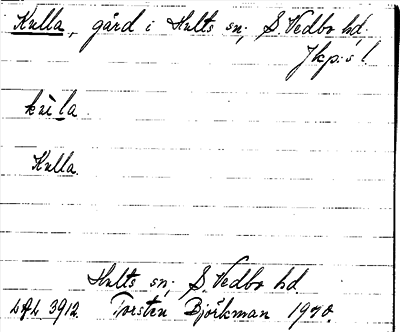 Kulla, gård i Hults sn, S. Vedbo hd.
Jkp:s l.
kùla
Kulla
Hults sn, S. Vedbo hd.
LAL 3912. Torsten Björkman 1940.